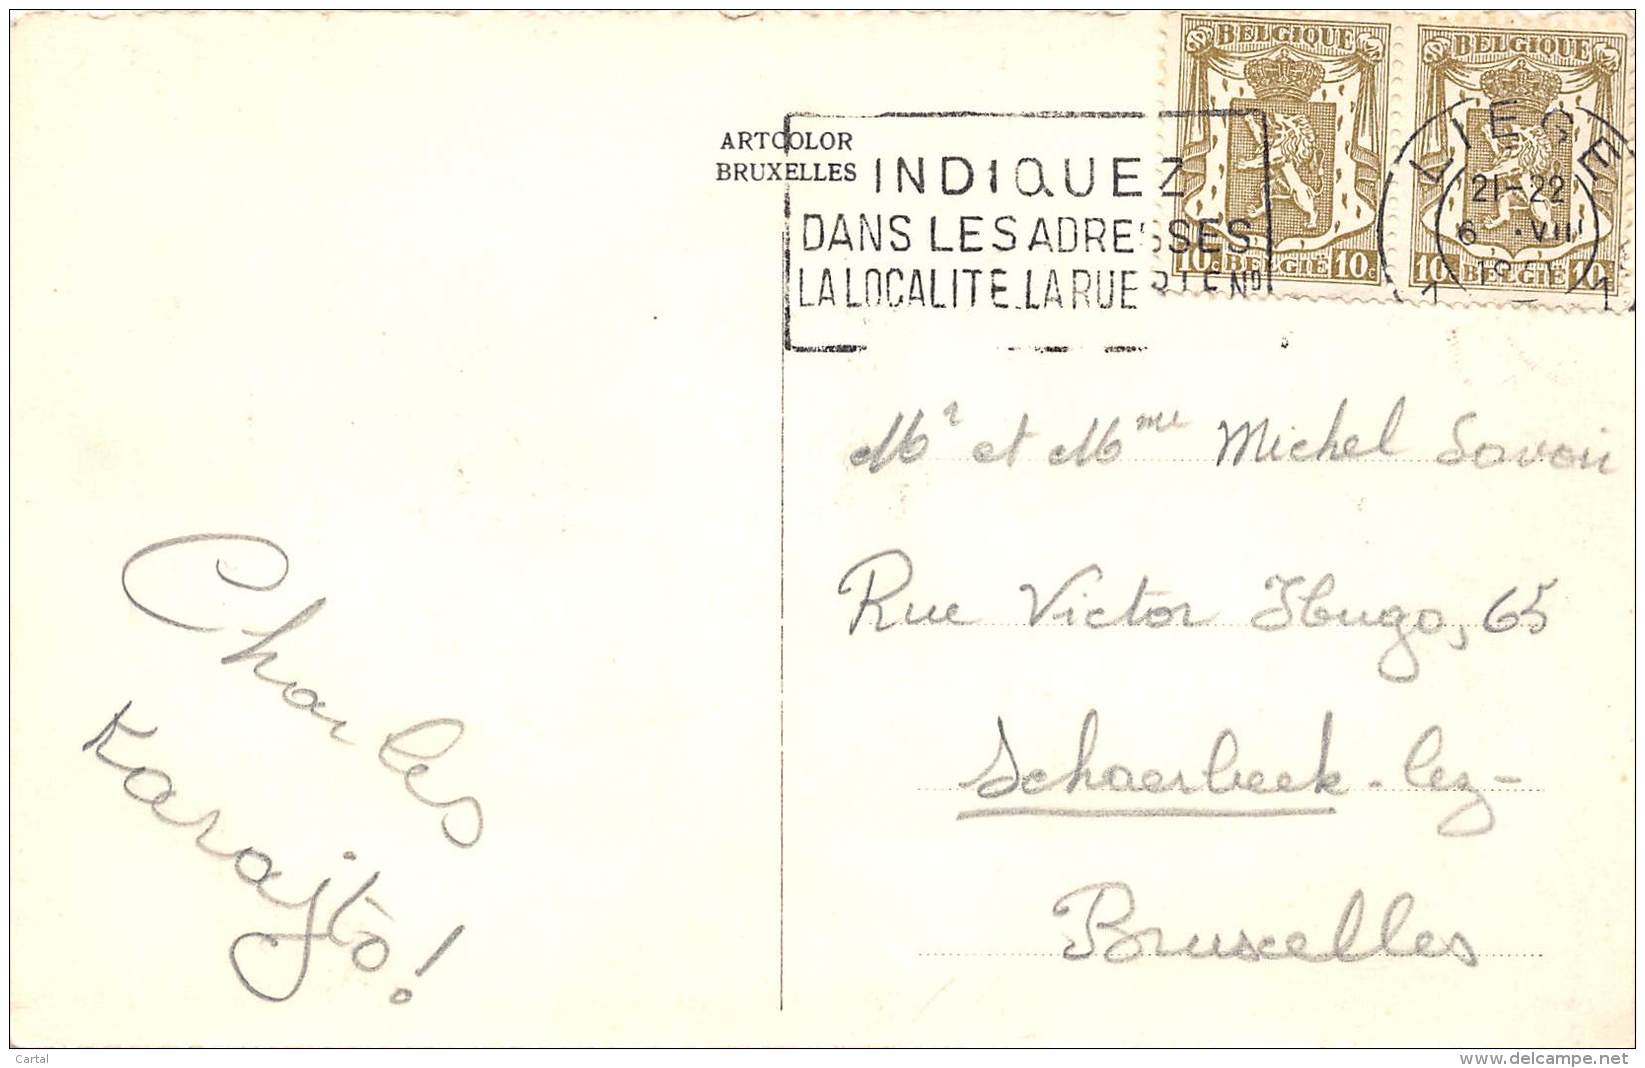 BELGIQUE BELGIQUE
10c BELGIË 10c 10c BELGIË 10c
LIEGE
21-22
6 VII
1 1
ARTCOLOR
BRUXELLES
INDIQUEZ
DANS LES ADRESSES
LA LOCALITE. LA RUE ET LE No
Mr et Mme Michel Savoir
Rue Victor Hugo, 65
Schaerbeek-lez-
Bruxelles
Charles
Karajto!
Cartal
delcampe.net